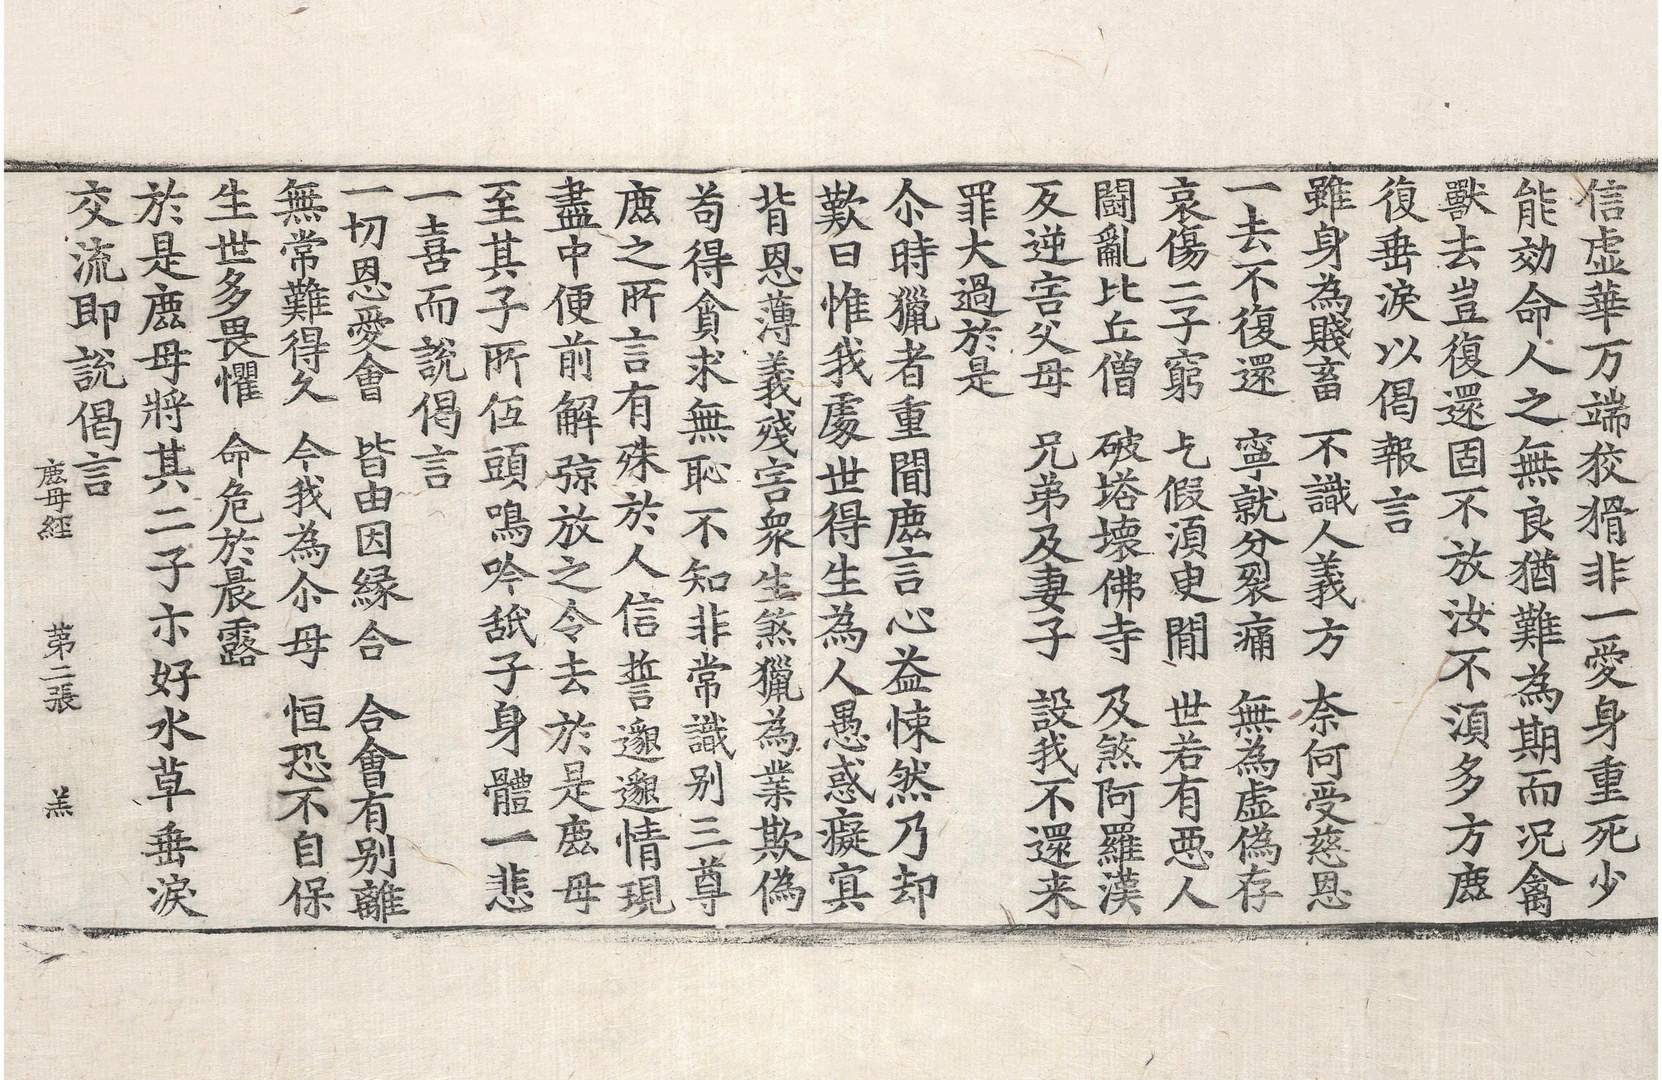 信虛華万端狡猾非一愛身重死少
能効命人之無良猶難為期而况禽
獸去豈復還固不放汝不湏多方鹿
復垂淚以偈報言
雖身為賤畜　不識人義方　柰何受慈恩
一去不復還　寧就分裂痛　無為虛偽存
哀傷二子窮　乞假湏臾閒　世若有惡人
鬪亂比丘僧　破塔壞佛寺　及煞阿羅漢
反逆害父母　兄弟及妻子　設我不還来
罪大過於是
尒時獵者重聞鹿言心益悚然乃却
歎曰惟我處世得生為人愚惑癡冥
背恩薄義殘害衆生煞獵為業欺偽
苟得貪求無恥不知非常識别三尊
鹿之所言有殊於人信誓邈邈情現
盡中便前解弶放之令去於是鹿母
至其子所低頭鳴吟舐子身體一悲
一喜而說偈言
一切恩愛會　皆由因緣合　合會有別離
無常難得久　今我為尒母　恒恐不自保
生世多畏懼　命危於晨露
於是鹿母將其二子示好水草垂淚
交流即說偈言
鹿母經　第二張　羔